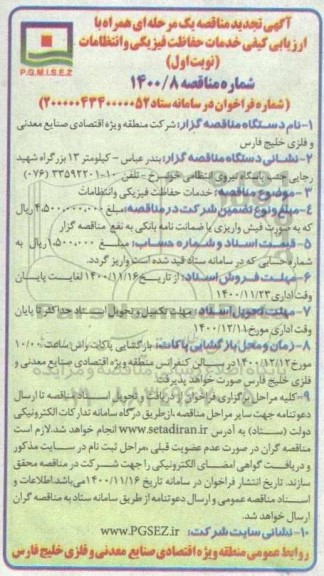 آگهی تجدید مناقصه یک مرحله ای همراه با
ارزیابی کیفی خدمات حفاظت فیزیکی و انتظامات
(نوبت اول)
P.G.M.I.S.E.Z
شماره مناقصه ۱۴۰۰/۸
(شماره فراخوان در سامانه ستاد ۲۰۰۰۰۰۴۳۴۰۰۰۰۰۵۲)
۱-نام دستگاه مناقصه گزار: شرکت منطقه ویژه اقتصادی صنایع معدنی
و فلزی خلیج فارس
۲-نشانی دستگاه مناقصه گزار: بندرعباس - کیلومتر ۱۳ بزرگراه شهید
رجایی جنب پاسگاه نیروی انتظامی خونسرخ - تلفن ۱۰-۳۳۵۹۲۲۰۱ (۰۷۶)
۳-موضوع مناقصه: خدمات حفاظت فیزیکی وانتظامات
۴-مبلغ ونوع تضمین شرکت در مناقصه: مبلغ ۴,۵۰۰,۰۰۰,۰۰۰ ریال
که به صورت فیش واریزی یا ضمانت نامه بانکی به نفع مناقصه گزار
۵- قیمت اسناد و شماره حساب: مبلغ ۱,۵۰۰,۰۰۰ ریال به
شماره حسابی که در سامانه ستاد قید شده است واریز گردد.
۶-مهلت فروش اسناد: از تاریخ ۱۴۰۰/۱۱/۱۶ لغایت پایان
وقت اداری ۱۴۰۰/۱۱/۲۳
۷-مهلت تحویل اسناد: مهلت تکمیل و تحویل اسناد حداکثر تا پایان
وقت اداری مورخ ۱۴۰۰/۱۲/۱۱
۸-زمان و محل بازگشایی پاکات: بازگشایی پاکات راس ساعت ۱۰/۰۰
مورخ ۱۴۰۰/۱۲/۱۲ در سالن کنفرانس منطقه ویژه اقتصادی صنایع معدنی و
فلزی خلیج فارس صورت خواهد پذیرفت.
۹-کلیه مراحل برگزاری فراخوان از دریافت و تحویل اسناد مناقصه تا ارسال
دعوتنامه جهت سایر مراحل مناقصه ،از طریق درگاه سامانه تدارکات الکترونیکی
دولت (ستاد) به آدرس www.setadiran.ir انجام خواهد شد. لازم است
مناقصه گران در صورت عدم عضویت قبلی ،مراحل ثبت نام در سایت مذکور
و دریافت گواهی امضای الکترونیکی را جهت شرکت در مناقصه محقق
سازند. تاریخ انتشار فراخوان در سامانه تاریخ ۱۴۰۰/۱۱/۱۶ می باشد.اطلاعات و
اسناد مناقصه عمومی و ارسال دعوتنامه از طریق سامانه ستاد به مناقصه گران
ارسال خواهد شد.
۱۰-نشانی سایت شرکت: www.PGSEZ.ir
روابط عمومی منطقه ویژه اقتصادی صنایع معدنی و فلزی خلیج فارس